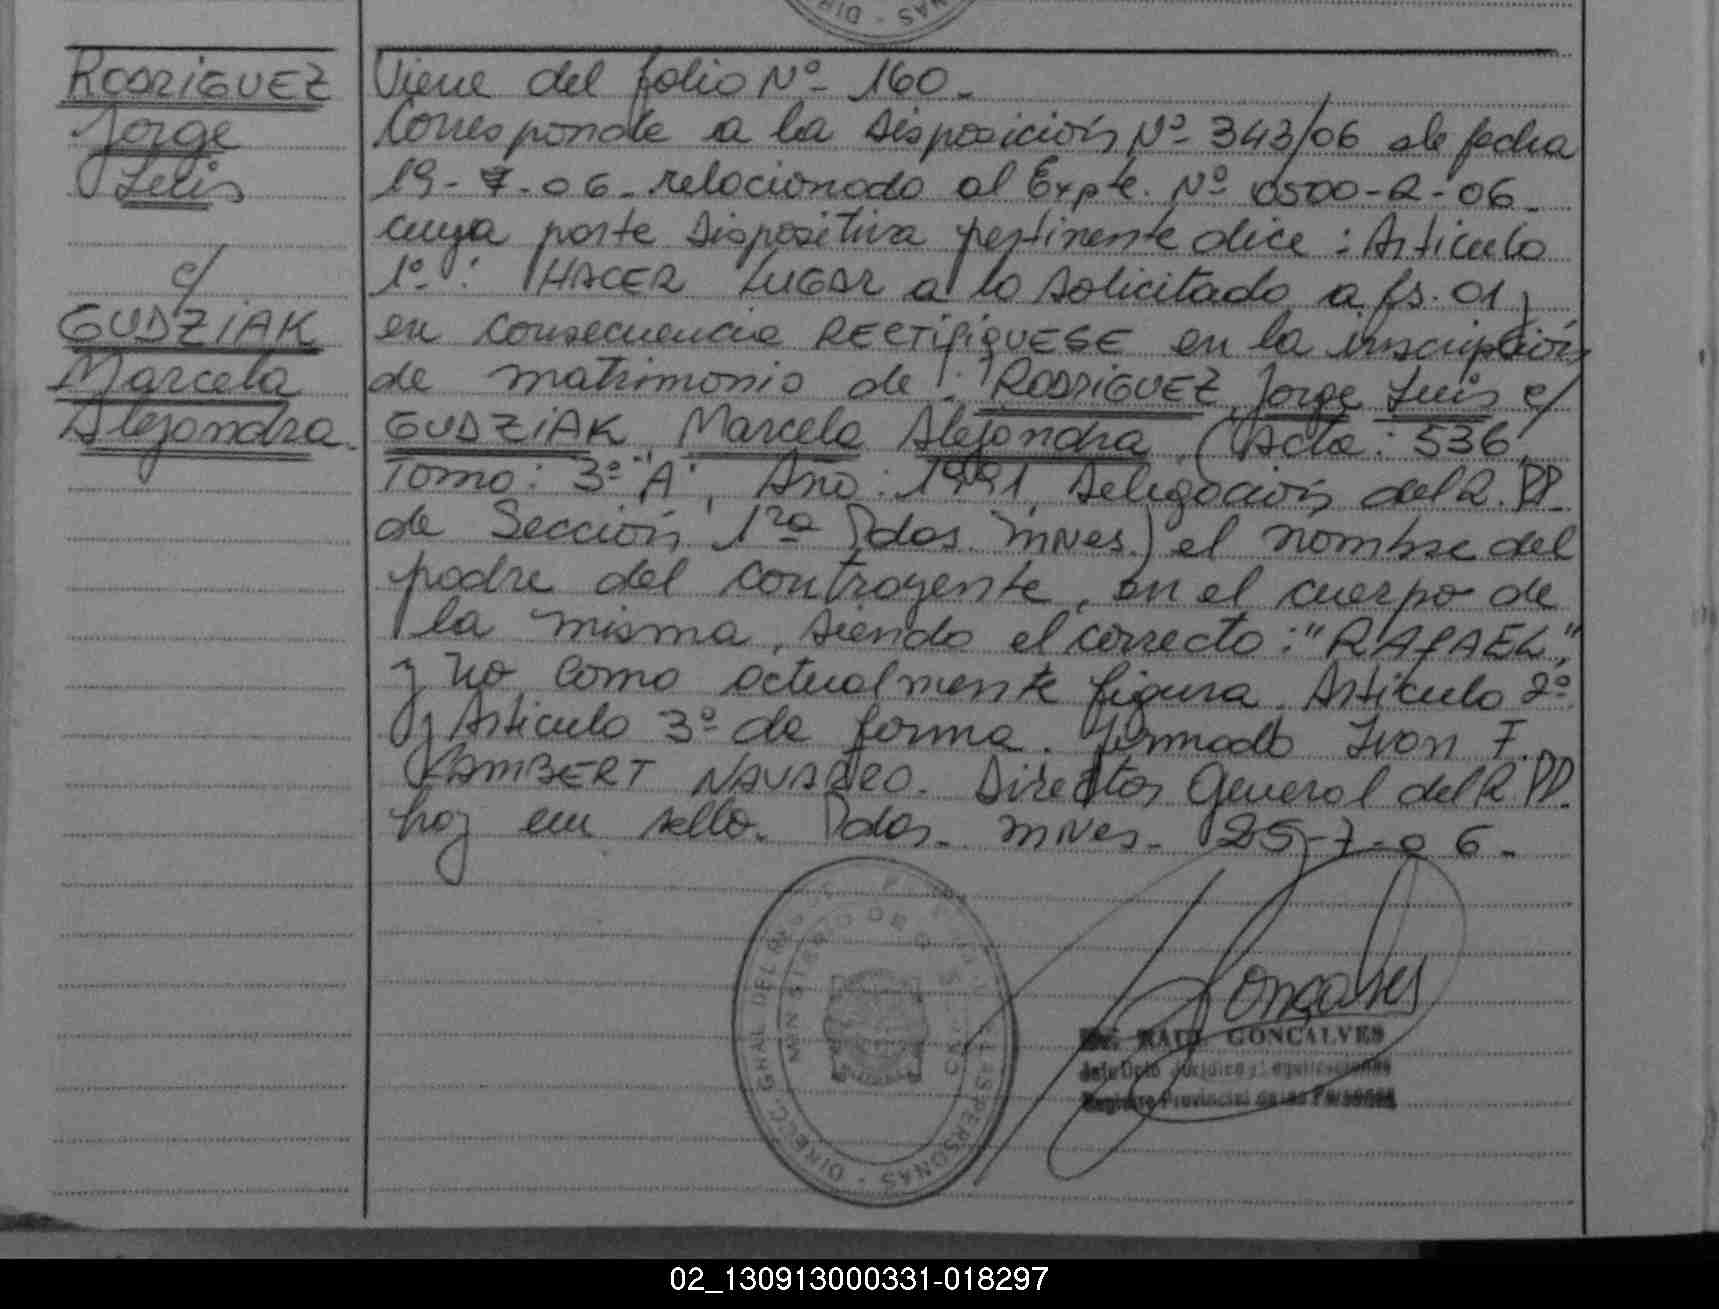 RODRIGUEZ
Jorge
Luis
c/
GUDZIAK
Marcela
Alejandra.
Viene del folio Nº 160.
Corresponde a la Disposición Nº 343/06 de fecha
19-7-06. relacionado al Expte. Nº 0500-R-06.
cuya parte Dispositiva pertinente dice: Articulo
1º: HACER LUGAR a lo solicitado a fs. 01,
en consecuencia RECTIFIQUESE en la inscripción
de matrimonio de: RODRIGUEZ, Jorge Luis c/
GUDZIAK, Marcela Alejandra. (Acta: 536,
Tomo: 3º "A", Año: 1991, Delegación del R.PP.
de Sección 1ra Pdas. Mnes.) el nombre del
padre del contrayente, en el cuerpo de
la misma, siendo el correcto: "RAFAEL",
y no como actualmente figura. Articulo 2º
y Articulo 3º de forma. firmado Ivan F.
LAMBERT NAVARRO. Director General del R.PP.
hay un sello. Pdas. Mnes. 25-7-06.
DIRECC. GRAL. DEL REG. LAS PERSONAS
MINISTERIO DE GOBIERNO
Goncalves
RAUL GONCALVES
Jefe Dpto Jurídico y Legalizaciones
Registro Provincial de las Personas
02_130913000331-018297